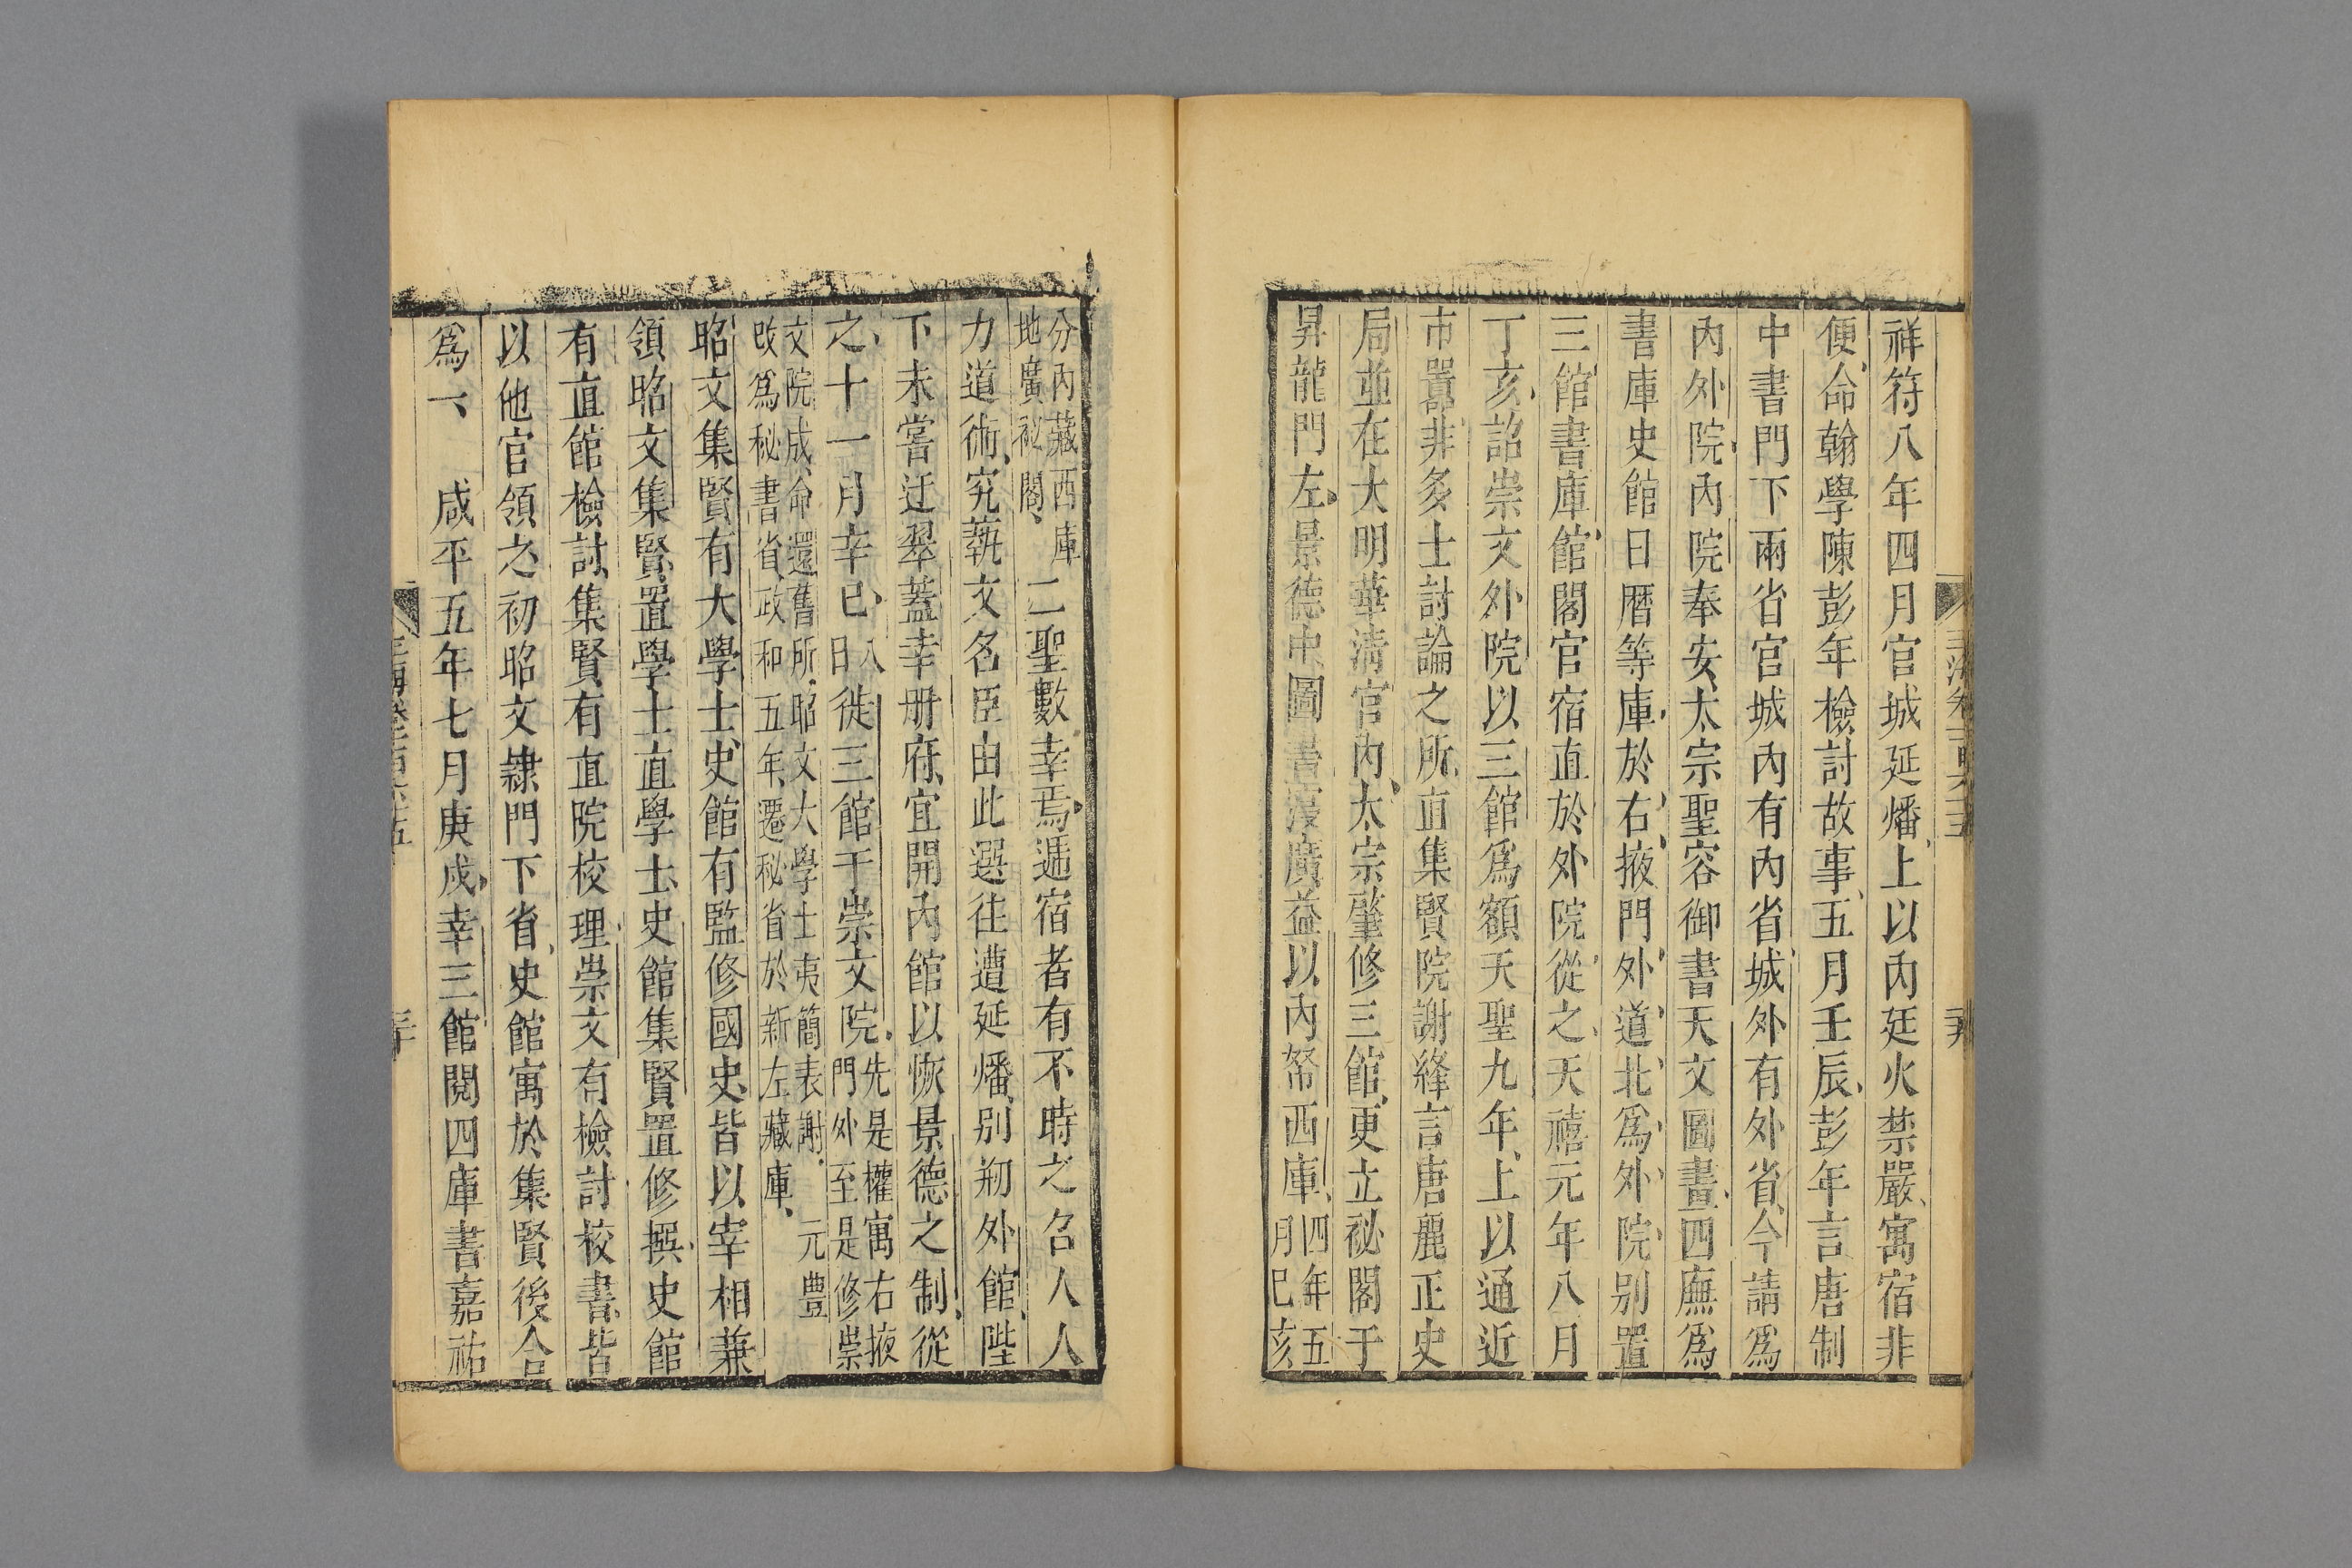 祥符八年四月宮城延燔上以內廷火禁嚴寓宿非
便命翰學陳彭年檢討故事五月壬辰彭年言唐制
中書門下兩省宮城內有內省城外有外省今請爲
內外院內院奉安太宗聖容御書天文圖畫四廡爲
書庫史館日曆等庫於右掖門外道北爲外院别置
三館書庫館閣官宿直於外院從之天禧元年八月
丁亥詔崇文外院以三館爲額天聖九年上以通近
市囂非多士討論之所直集賢院謝絳言唐麗正史
局並在大明華清宮內太宗肇修三館更立祕閣于
昇龍門左景德中圖書寖廣益以內帑西庫四年五
月巳亥
分內藏西庫
地廣祕閣二聖數幸焉遞宿者有不時之召人人
力道術究蓺文名臣由此選往遭延燔别剏外館陛
下未嘗迂翠蓋幸册府宜開內館以恢景德之制從
之十一月辛巳八日徙三館于崇文院先是權寓右掖
門外至是修崇
文院成命還舊所昭文大學士夷簡表謝元豐
改爲秘書省政和五年遷秘省於新左藏庫
昭文集賢有大學士史館有監修國史皆以宰相兼
領昭文集賢置學士直學士史館集賢置修撰史館
有直館檢討集賢有直院校理崇文有檢討校書皆
以他官領之初昭文隷門下省史館寓於集賢後合
爲一咸平五年七月庚戌幸三館閱四庫書嘉祐